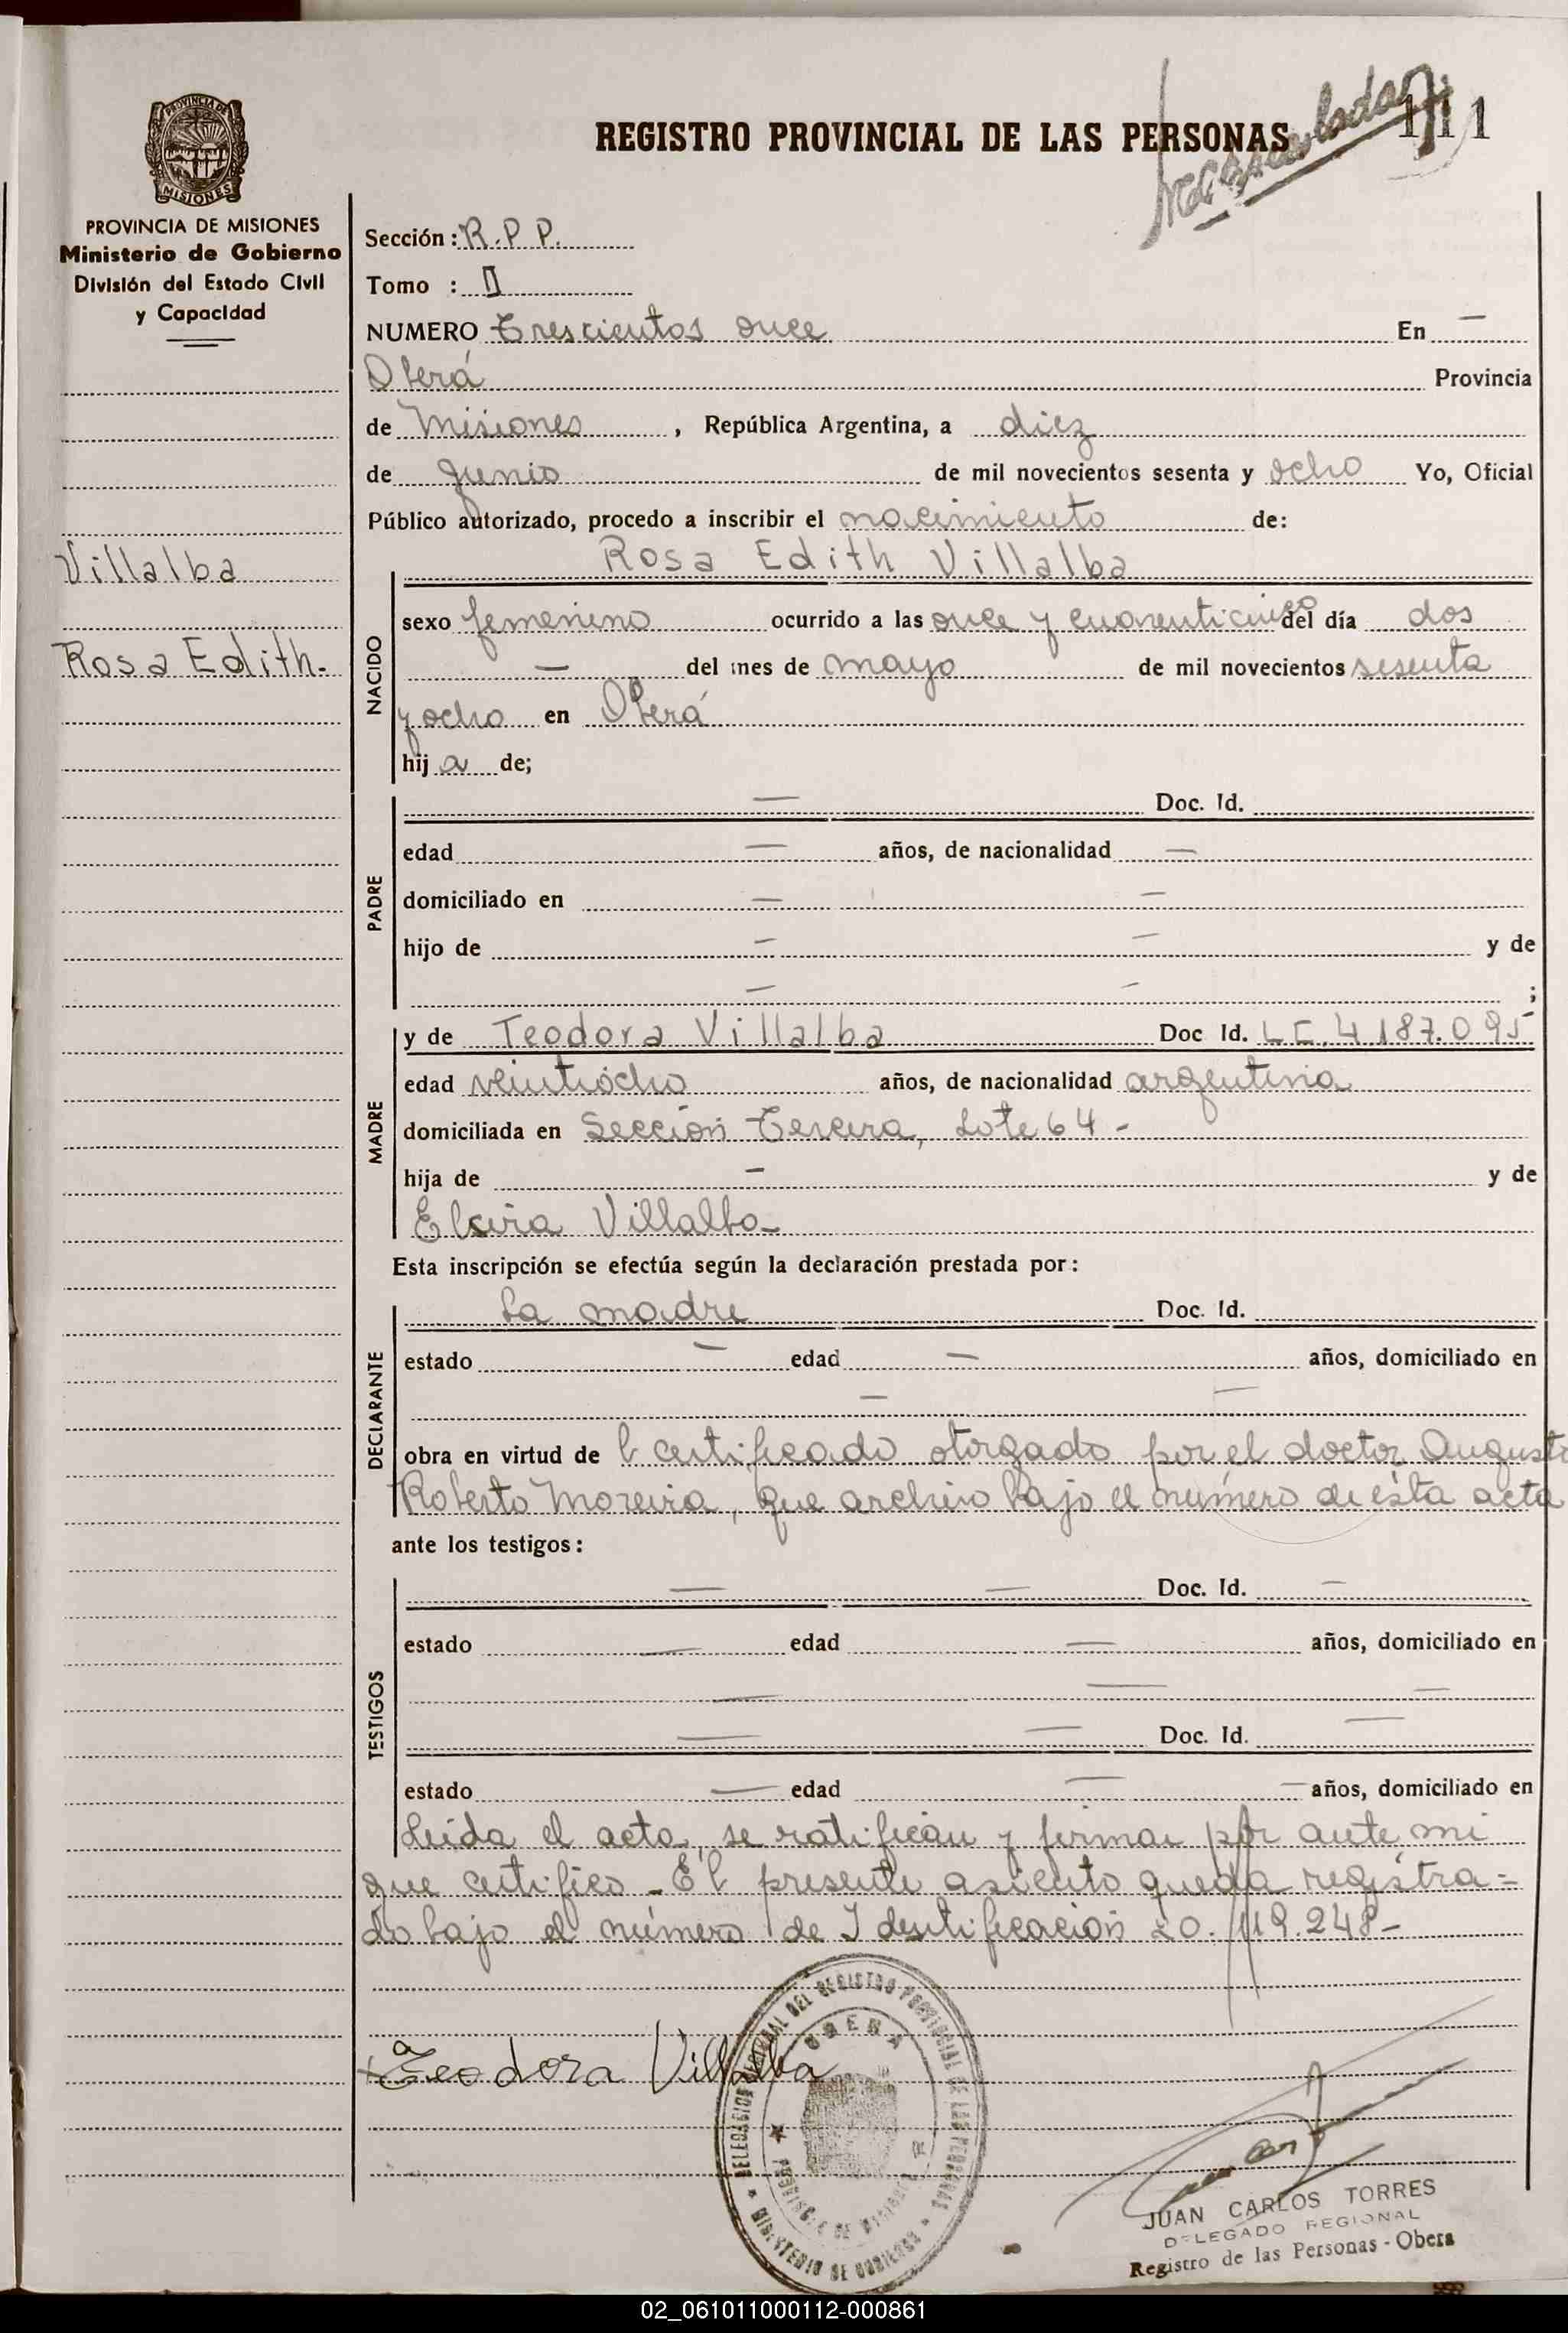 REGISTRO PROVINCIAL DE LAS PERSONAS
111
PROVINCIA DE
MISIONES
PROVINCIA DE MISIONES
Ministerio de Gobierno
División del Estado Civil
y Capacidad
Villalba
Rosa Edith.
Sección : R.P.P.
Tomo : II
NUMERO Trescientos once En —
Oberá Provincia
de Misiones , República Argentina, a diez
de junio de mil novecientos sesenta y ocho Yo, Oficial
Público autorizado, procedo a inscribir el nacimiento de:
Rosa Edith Villalba
NACIDO
sexo femenino ocurrido a las once y cuarenticinco del día dos
— del mes de mayo de mil novecientos sesenta
y ocho en Oberá
hija de;
PADRE
— Doc. Id.
edad — años, de nacionalidad —
domiciliado en — —
hijo de — — y de
— — ;
MADRE
y de Teodora Villalba Doc Id. L C. 4.187.095
edad veintiocho años, de nacionalidad argentina
domiciliada en Sección Tercera, Lote 64 -
hija de — y de
Villalba
Esta inscripción se efectúa según la declaración prestada por:
DECLARANTE
La madre Doc. Id.
estado — edad — años, domiciliado en
— —
obra en virtud de l certificado otorgado por el doctor Augusto
Roberto Moreira, que archivo bajo el número de ésta acta
ante los testigos:
TESTIGOS
— — Doc. Id. —
estado — edad — años, domiciliado en
— — —
— — Doc. Id. —
estado — edad — — años, domiciliado en
Leída el acta, se ratifican y firman por ante mi
que certifico - El presente asiento queda registra=
do bajo el número de Identificación 20.119.248-
Teodora Villalba
DELEGACION REGIONAL DEL REGISTRO PROVINCIAL DE LAS PERSONAS
MINISTERIO DE GOBIERNO
OBERA
PROVINCIA DE MISIONES
JUAN CARLOS TORRES
DELEGADO REGIONAL
Registro de las Personas - Obera
02_061011000112-000861